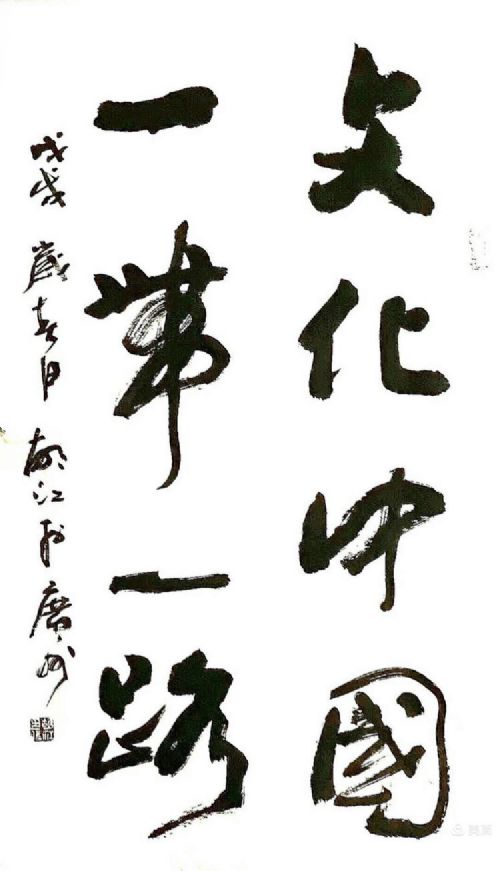 文化中國
一帶一路
戊戌歲春月 江於廣州